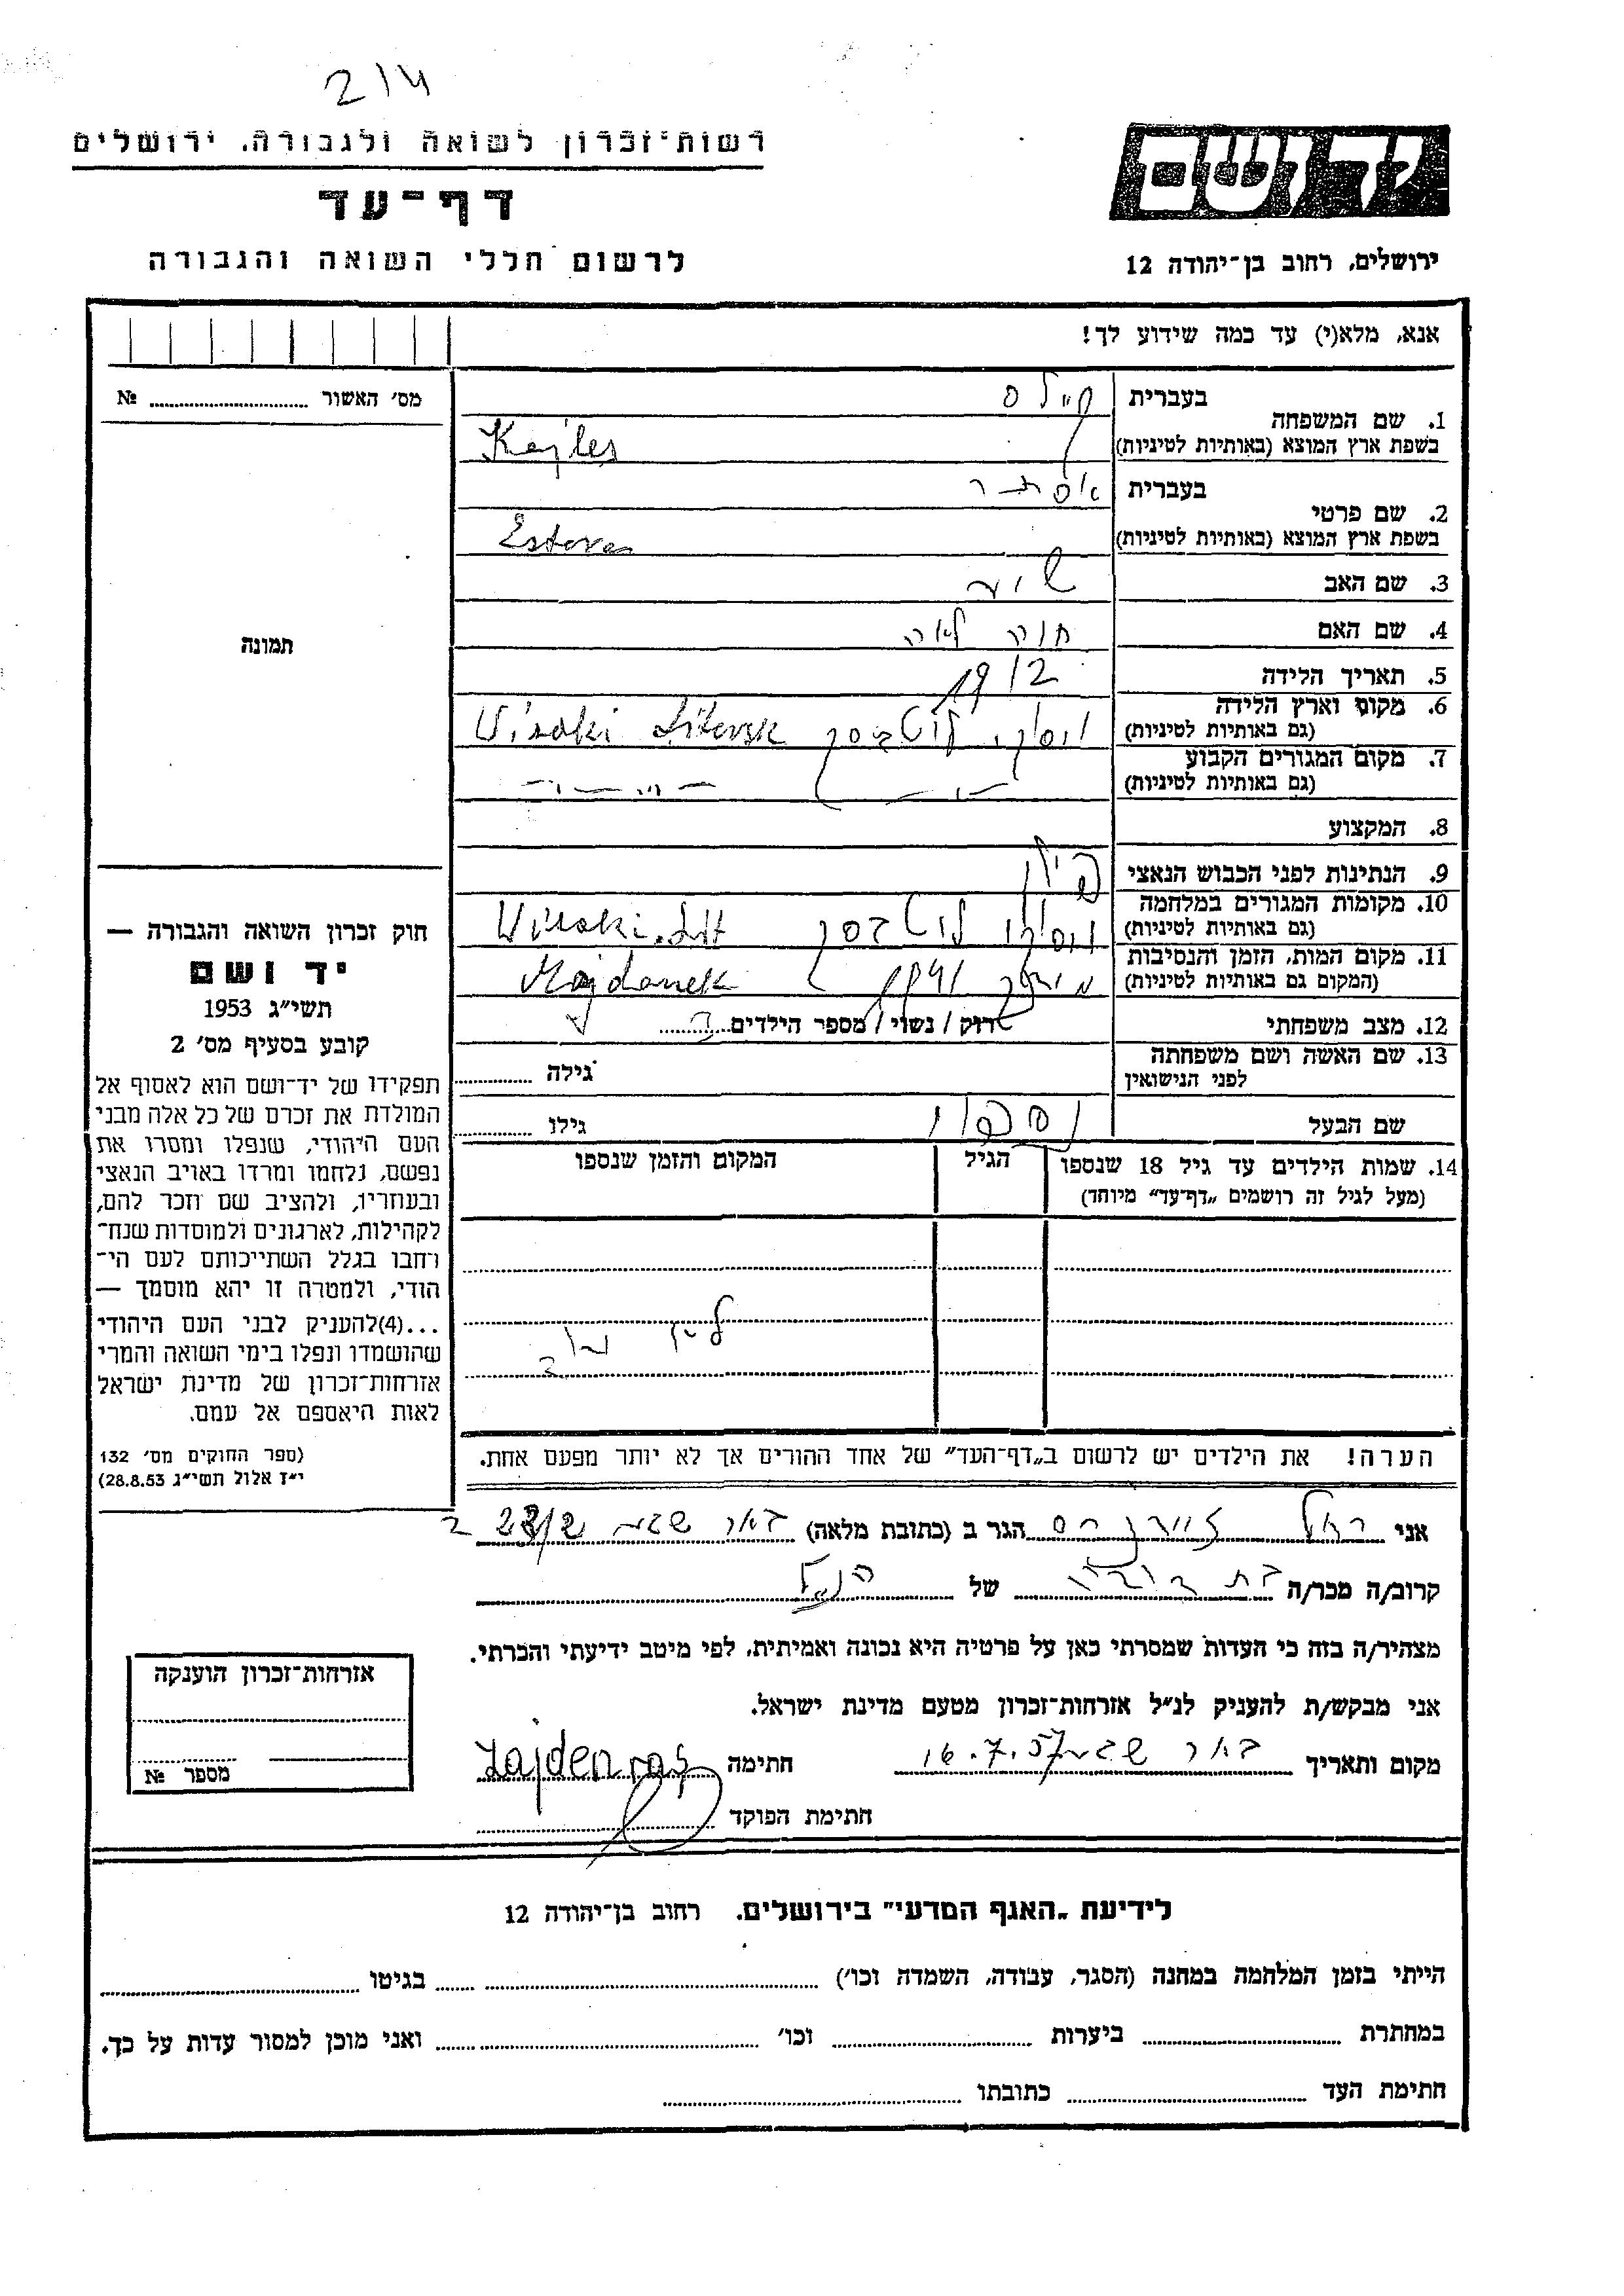 2/4
רשות־זכרון לשואה ולגבורה, ירושלים
דף־עד
לרשום חללי השואה והגבורה
יד ושם
ירושלים, רחוב בן־יהודה 12
אנא, מלא(י) עד כמה שידוע לך!
מס׳ האשור № 
תמונה
חוק זכרון השואה והגבורה —
יד ושם
תשי״ג 1953
קובע בסעיף מס׳ 2
תפקידו של יד־ושם הוא לאסוף אל
המולדת את זכרם של כל אלה מבני
העם היהודי, שנפלו ומסרו את
נפשם, נלחמו ומרדו באויב הנאצי
ובעוזריו, ולהציב שם וזכר להם,
לקהילות, לארגונים ולמוסדות שנח־
רחבו בגלל השתייכותם לעם הי־
הודי, ולמטרה זו יהא מוסמך —
...(4)להעניק לבני העם היהודי
שהושמדו ונפלו בימי השואה והמרי
אזרחות־זכרון של מדינת ישראל
לאות היאספם אל עמם.
(ספר החוקים מס׳ 132
י״ז אלול תשי״ג 28.8.53)
בעברית קיילס
1. שם המשפחה
בשפת ארץ המוצא (באותיות לטיניות) Kejles
בעברית אסתר
2. שם פרטי
בשפת ארץ המוצא (באותיות לטיניות) Estera
3. שם האב
4. שם האם חוה לאה
5. תאריך הלידה 1912
6. מקום וארץ הלידה
(גם באותיות לטיניות) Wisoki Litewsk
7. מקום המגורים הקבוע
(גם באותיות לטיניות) — " — — " —
8. המקצוע
9. הנתינות לפני הכבוש הנאצי פולין
10. מקומות המגורים במלחמה
(גם באותיות לטיניות) Wisoki. Lit
11. מקום המות, הזמן והנסיבות
(המקום גם באותיות לטיניות) 1941 Majdanek
12. מצב משפחתי רווק / נשוי / מספר הילדים
13. שם האשה ושם משפחתה
לפני הנישואין גילה
שם הבעל גילו
14. שמות הילדים עד גיל 18 שנספו הגיל המקום והזמן שנספו
(מעל לגיל זה רושמים „דף־עד״ מיוחד)
הערה! את הילדים יש לרשום ב„דף־העד״ של אחד ההורים אך לא יותר מפעם אחת.
אני רחל הגר ב (כתובת מלאה) באר שבע
קרוב/ה מכר/ה בת דודה של הנ״ל
מצהיר/ה בזה כי העדות שמסרתי כאן על פרטיה היא נכונה ואמיתית, לפי מיטב ידיעתי והכרתי.
אני מבקש/ת להעניק לנ״ל אזרחות־זכרון מטעם מדינת ישראל.
מקום ותאריך באר שבע 16.7.57 חתימה Zajdenras
חתימת הפוקד
אזרחות־זכרון הוענקה
מספר №
לידיעת „האגף המדעי״ בירושלים. רחוב בן־יהודה 12
הייתי בזמן המלחמה במחנה (הסגר, עבודה, השמדה וכו׳) בגיטו
במחתרת ביערות וכו׳ ואני מוכן למסור עדות על כך.
חתימת העד כתובתו